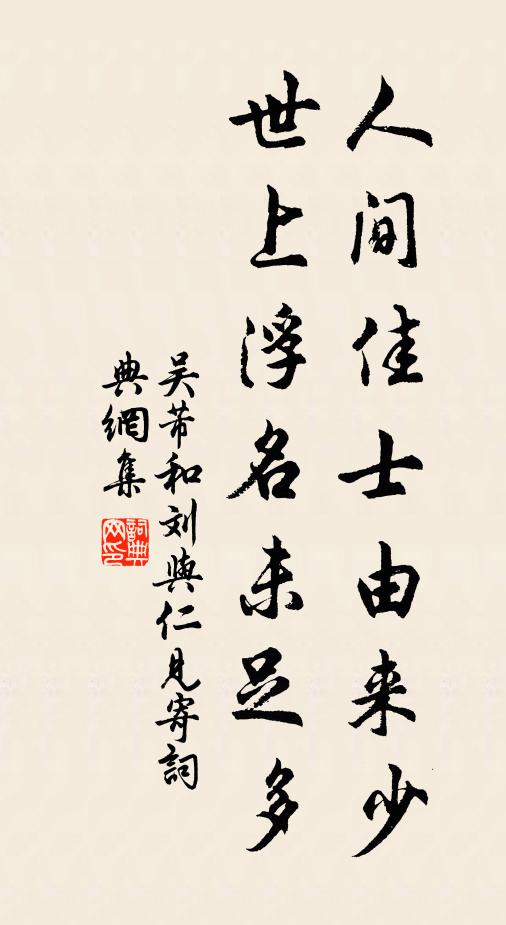 人间佳士由来少
世上浮名未足多
吴芾和刘與仁見寄詞
典網集
詞典
网印